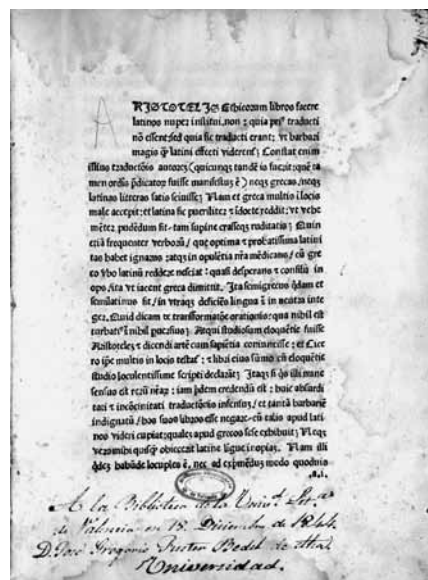 ARISTOTELIS Ethicorum libros facere
latinos nuper institui, non : quia priꝰ traducti
nō essent: sed quia sic traducti erant: vt barbari
magis q̄ latini effecti viderent̄. Constat enim
illius traductōis autorē (quicunqꝫ tandē is fuerit: quē ta
men ordīs p̄dicatoꝝ fuisse manifestuꝫ ē) neqꝫ grecas, neqꝫ
latinas litteras satis sciuisse. Nam et greca multis ī locis
male accepit: et latina sic pueriliter ⁊ īdocte reddit: vt vehe
mēter pudēdum sit tam supine crasseqꝫ ruditatis. Quin
etiā frequenter verborū / que optima ⁊ probatissima latini
tas habet ignarus: atqꝫ in opulētia nr̄a mēdicans / cū gre
co v̄bo latinū reddere nesciat: quasi desperans ⁊ consilii in
ops, ita vt iacent greca dimittit. Ita semigrecus q̄dam et
semilatinus fit / in vtraqꝫ deficiēs lingua ī in neutra inte
ger. Quid dicam de transformatiōe orationis: qua nihil est
turbatiꝰ ī nihil peruersiuꝫ. Atqui studiosum eloquētie fuisse
Aristotelē ⁊ dicendi artē cum sapiētia coniunxisse: et Cice
ro ip̄e multis in locis testat̄: ⁊ libri eius sūmo cū eloquētie
studio luculentissime scripti declarāt. Itaqꝫ si q̄s illi nunc
sensus est rerū nr̄aꝝ: iam pridem credendū est: huic absurdi
tati ⁊ incōcinitati traductōis infensuꝫ / et tantā barbariē
indignatū / hos suos libros esse negare: cū talis apud lati
nos videri cupiat: quales apud grecos sese exhibuit. Neqꝫ
vero mihi quisq̄ obiecerit latine līgue inopiaꝫ. Nam illi
q̄dez habūde locuples ē, nec ad exp̄mēduꝫ modo quoduis
.a.i.
A la Biblioteca de la Univ.d Lit.a
de Valencia en 15. Diciembre de 1844.
D. José Gregorio Fuster
Universidad.